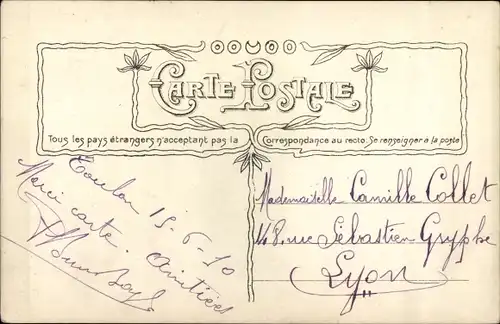 CARTE POSTALE
Tous les pays étrangers n'acceptant pas la Correspondance au recto Se renseigner à la poste
Toulon 15-6-10
Merci carte. Amitiés
Mademoiselle Camille Collet
48, rue Sébastien Gryphe
Lyon